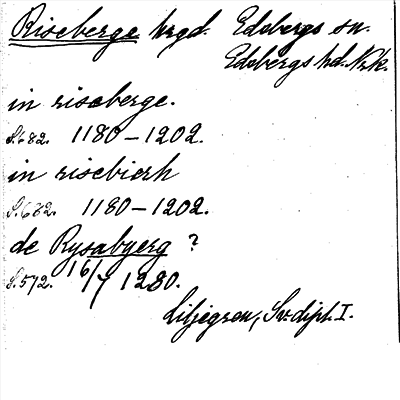 Riseberge hrgd. Edsbergs sn.
Edsbergs hd. Nrk.
in riseberge.
S. 682. 1180-1202.
in risebierh
S. 682. 1180-1202.
de Rysabyerg ?
S. 572. 16/7 1280.
Liljegren, Sv. dipl. I.